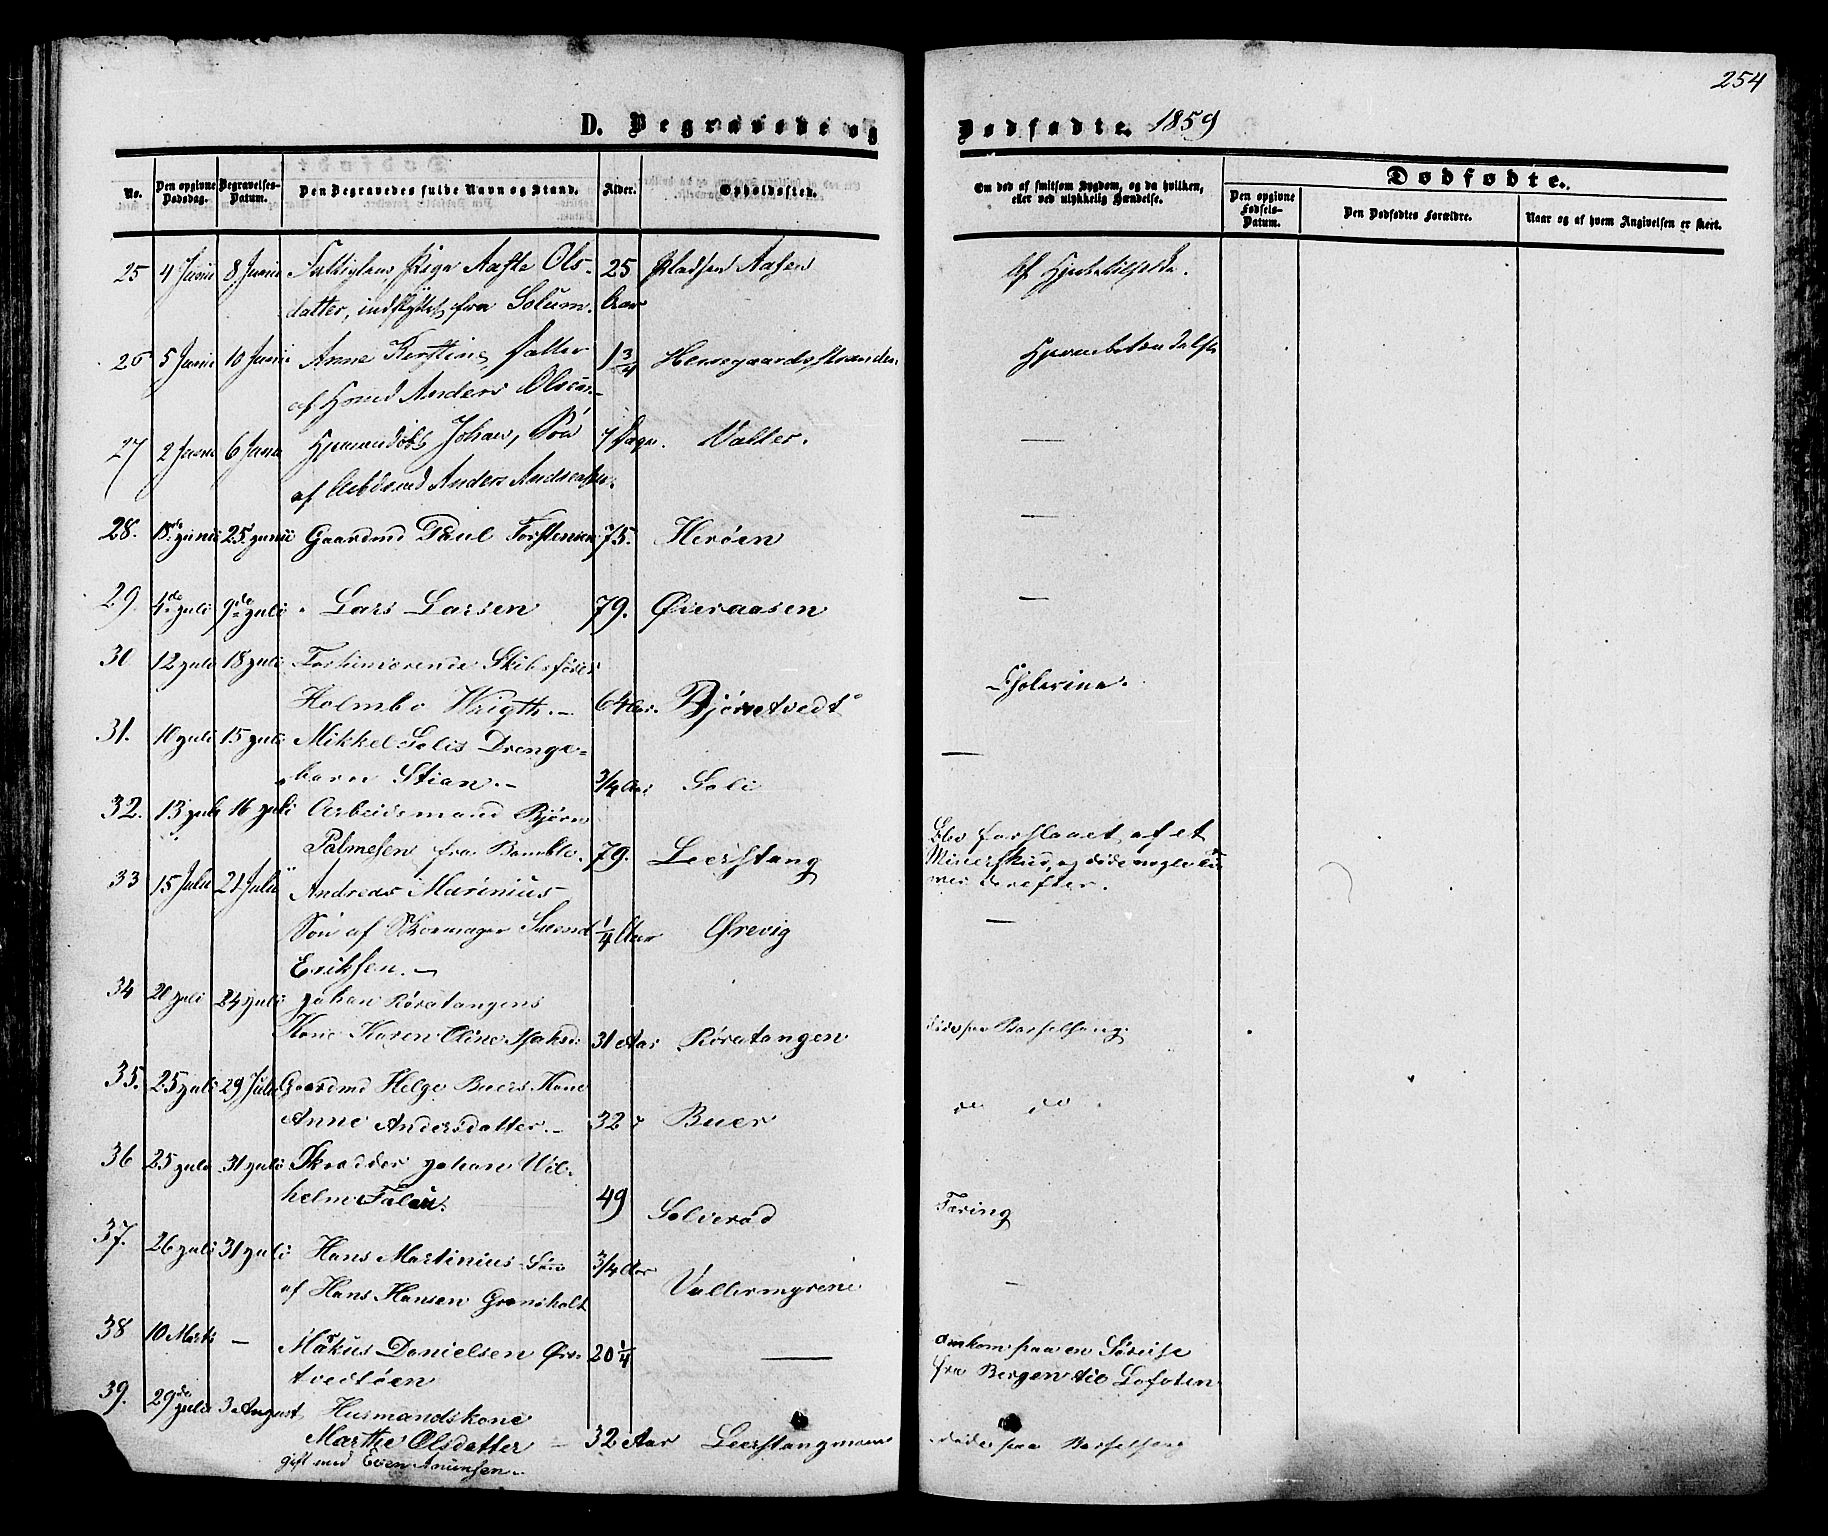 254
D. Begravede og Dødfødte. 1859
No. Den opgivne Dødsdag. Begravelses-Datum. Den Begravedes fulde Navn og Stand. Alder. Opholdssted. Om død af smitsom Sygdom, og da hvilken, eller ved ulykkelig Hændelse. Dødfødte.
Den opgivne Fødsels-Datum. Den Dødfødtes Forældre. Naar og af hvem Angivelsen er skeet.
25 4 Junii 8 Junii Pige Aaste Ols- 25 Pladsen Aasen Af
datter, indflyttet fra Solum. Aar
26 5 Junii 10 Junii Anne Kerstine, Datter 1 3/4
af Anders Olsen
27 2 Junii 6 Junii Johan, Søn 7 Dage. Valler. —
af Anders
28. 18de Junii 25 Junii Gaardmd Paul Torstensen 75. Herøen —
29. 4de Juli 9de Juli Lars Larsen 79. Øieraasen —
30 12 Juli 18 Juli Forhenværende Skibsfører
Holmbo Wrigth. — 64 Aar. Bjørntvedt Cholerine.
31. 10 Juli 15 Juli Mikkel Solis Drenge-
barn Stian. — 3/4 Aar Soli —
32. 13 Juli 16 Juli Arbeidsmand Bjørn
Palmesen fra Bamble. 79. Leerstang Blev forslaaet af et
Mineskud, og døde nogle Ti-
mer derefter.
33 15 Juli 21 Juli Andreas Marinius
Søn af Skomager Svend 1/4 Aar Ørevig —
Eriksen. —
34 20 Juli 24 Juli Johan Røratangens
Kone Karen Oline 31 Aar Røratangen døde paa Barselseng
35. 25 Juli 29 Juli Gaardmd Helge Buers Kone
Anne Andersdatter. — 32 Buer do do
36 25 Juli 31 Juli Skrædder Johan Wil-
helm 49 Solierød Tæring
37. 26 Juli 31 Juli Hans Martinius Søn 3/4 Aar
af Hans Hansen Grønsholt Vallermyrene —
38 10 Marts — Markus Danielsen 20 1/4 — omkom paa en Søreise
tvedtøen fra Bergen til Lofoten
39. 29de Juli 3 August Husmandskone
Marthe Olsdatter — 32 Aar døde paa Barselseng
gift med Even